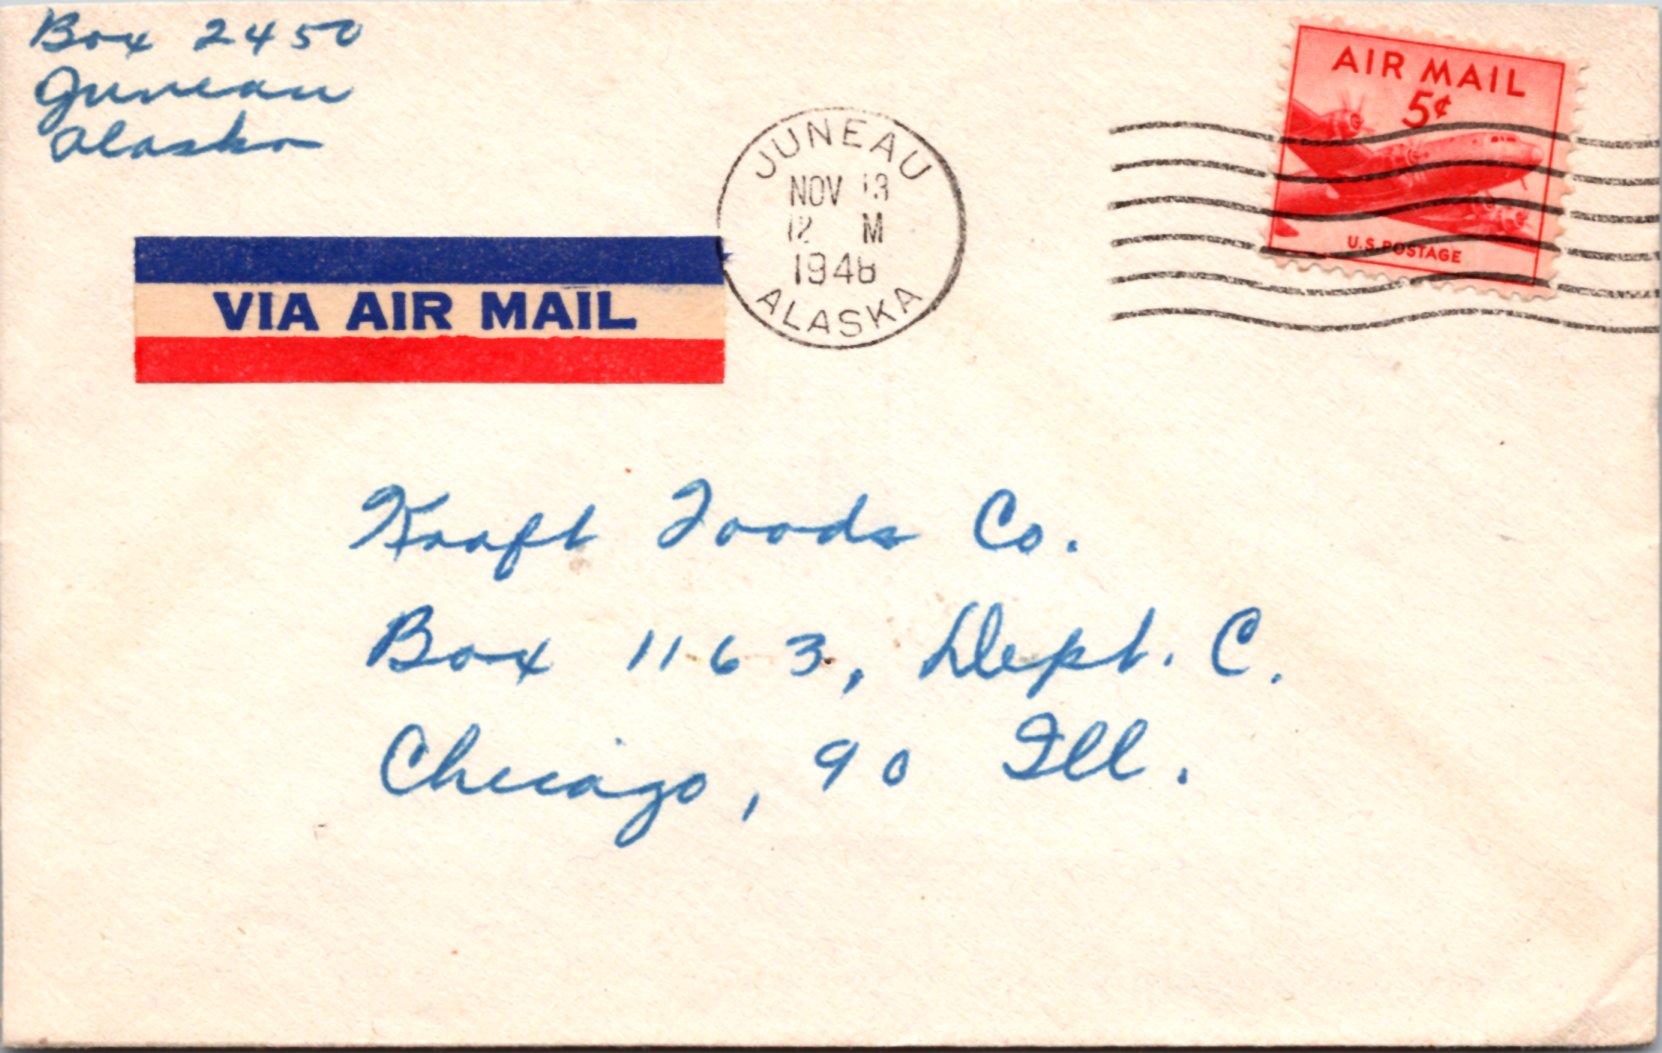 Box 2450
Juneau
Alaska
AIR MAIL
5¢
U.S. POSTAGE
JUNEAU
NOV 13
12 M
1948
ALASKA
VIA AIR MAIL
Kraft Foods Co.
Box 1163, Dept. C.
Chicago, 90 Ill.